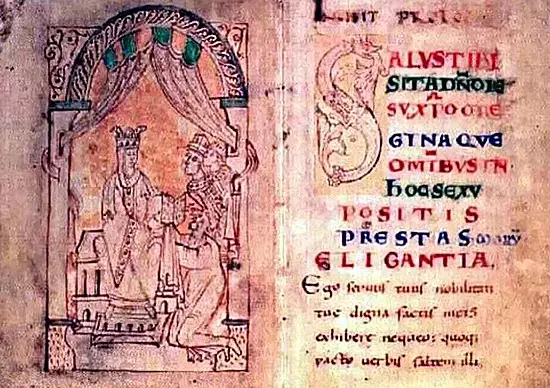 SALVSTIBI
SITADÑOIE
SVXPOORE
GINAQVE
OMNIBVSIN
hOCSEXV
POSITIS
PRESTAS MORṼ
ELIGANTIA.
Ego seruus tuus nobilitati
tuę digna factis meis
exhibere nequeo: quoqɜ
pacto uerbis saltem illi